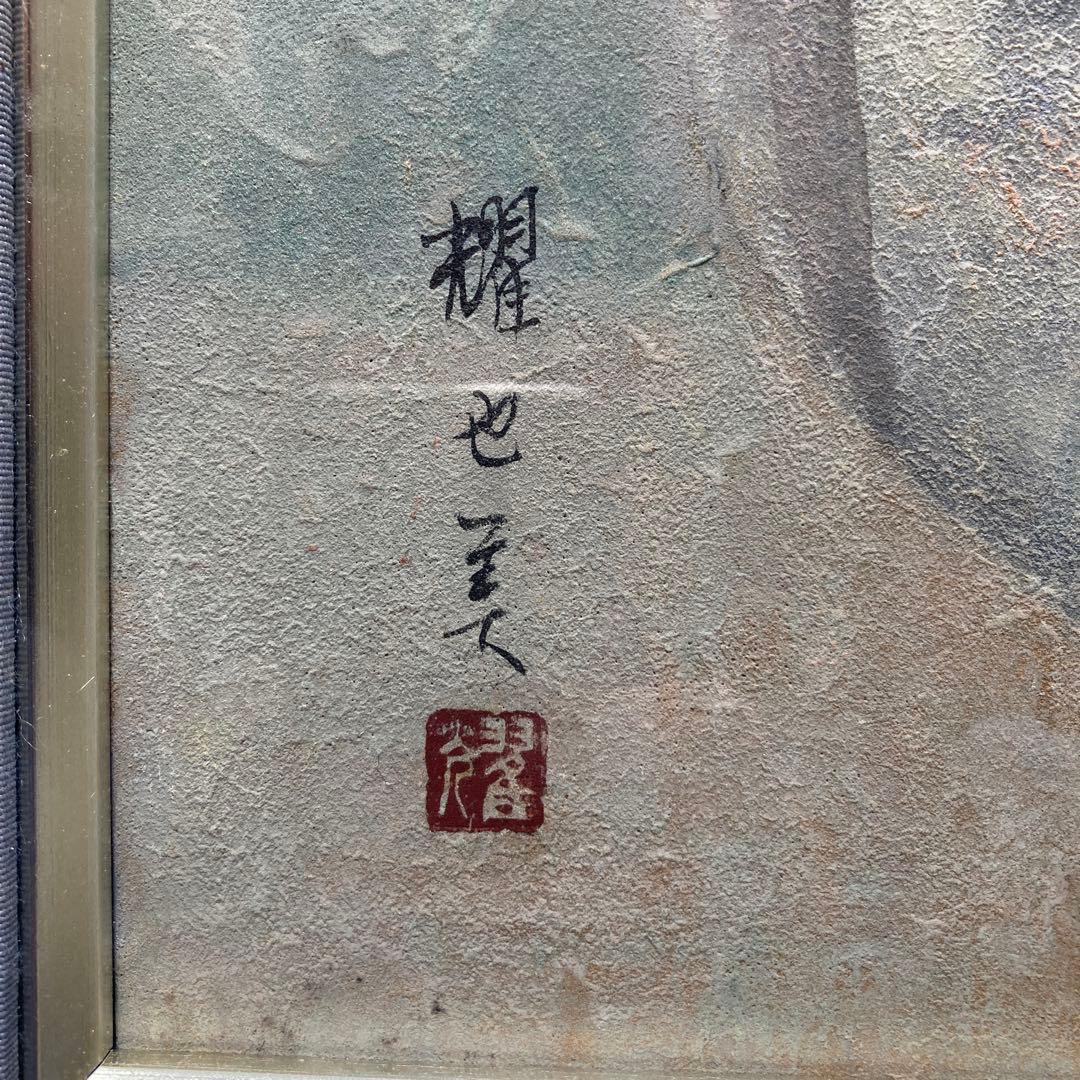 耀也美
耀